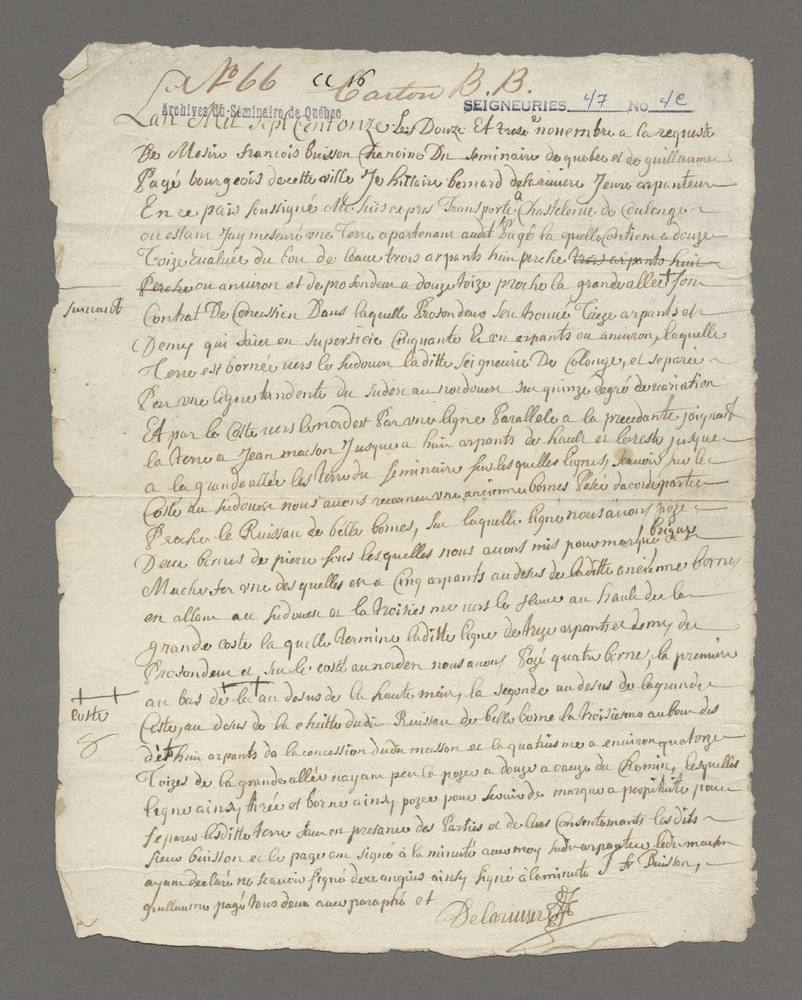 No 66 CC 16 Carton B. B.
Archives du Séminaire de Québec SEIGNEURIES 47 No 4e
Lan Mil Sept Cent onze les Douze Et trese novembre a la requeste
De Mesire francois buisson Chanoine Du seminaire de quebec et de guillaume
Pagé bourgeois de cette ville Je hillaire bernard delariviere Jeure arpanteur
En ce païs soussigné Me suis expres Transporte a Chastelenie de Coulonge
ou estant Jay mesuré une Terre apartenant audit Pagé la quelle Contient a douze
Toize Evaluée du bou de leau trois arpants huit perche trois arpants huit
Perche ou anviron et de profondeur a douze toize proche la grande allée son
suivant
Contrat De Concession Dans laquelle Profondeur sen trouve Treze arpants et
Demy qui faict en superficie Cinquante Et un arpants ou anviron, laquelle
Terre est bornée vers le sudouest laditte seigneurie De Colonge, et separée
Par une ligne tandente du sudest au nordouest sur quinze degré de variation
Et par le Costé vers le nordest Par une ligne Parallele a la precedante joignant
la terre a Jean masson Jusque a huit arpants de hault et le reste jusque
a la grande allée les terre du seminaire sur lesquelles lignes scavoir sur le
Costé au sudouest nous avons reconneu une ancienne bornes Posée dacorde partie
Proche le Ruissau de belle bornes, sur laquelle ligne nous avons poze
Deux bornes de pierre sous lesquelles nous avons mis pour marque brique
Machefer une desquelles est a Cinq arpants au desus de laditte ansienne bornes
en allant au sudouest et la troisiesme vers le fleuve au hault de la
grande coste la quelle termine laditte ligne de treze arpants et demy de
Profondeur et sur le costé au nordest nous avons Pozé quatre bornes, la premiere
au bas de la au desus de la haute mair, la segonde au desus de la grande
coste
Coste, au desus de la chuitte dudi Ruissau de belle borne la troisiesme au bout des
dit huit arpants de la concession dudit masson et la quatriesme a environ quatorze
Toizes de la grande allée nayant peu la pozer a douze a cauze du Chemin, lesquelles
ligne ainsy tirée et borne ainsy pozée pour servir de marque a perpetuité pour
separer lesditte terre faict en presance des Parties et de leurs Consentements lesdits
sieur buisson et le page ont signé à la minutte avec moy sudit arpanteur ledit masson
ayant declaré ne scavoir signé de ce enquis ainsy signé à la minute J fr Buisson,
guillaume pagé tous deux avec paraphe et
Delariviere